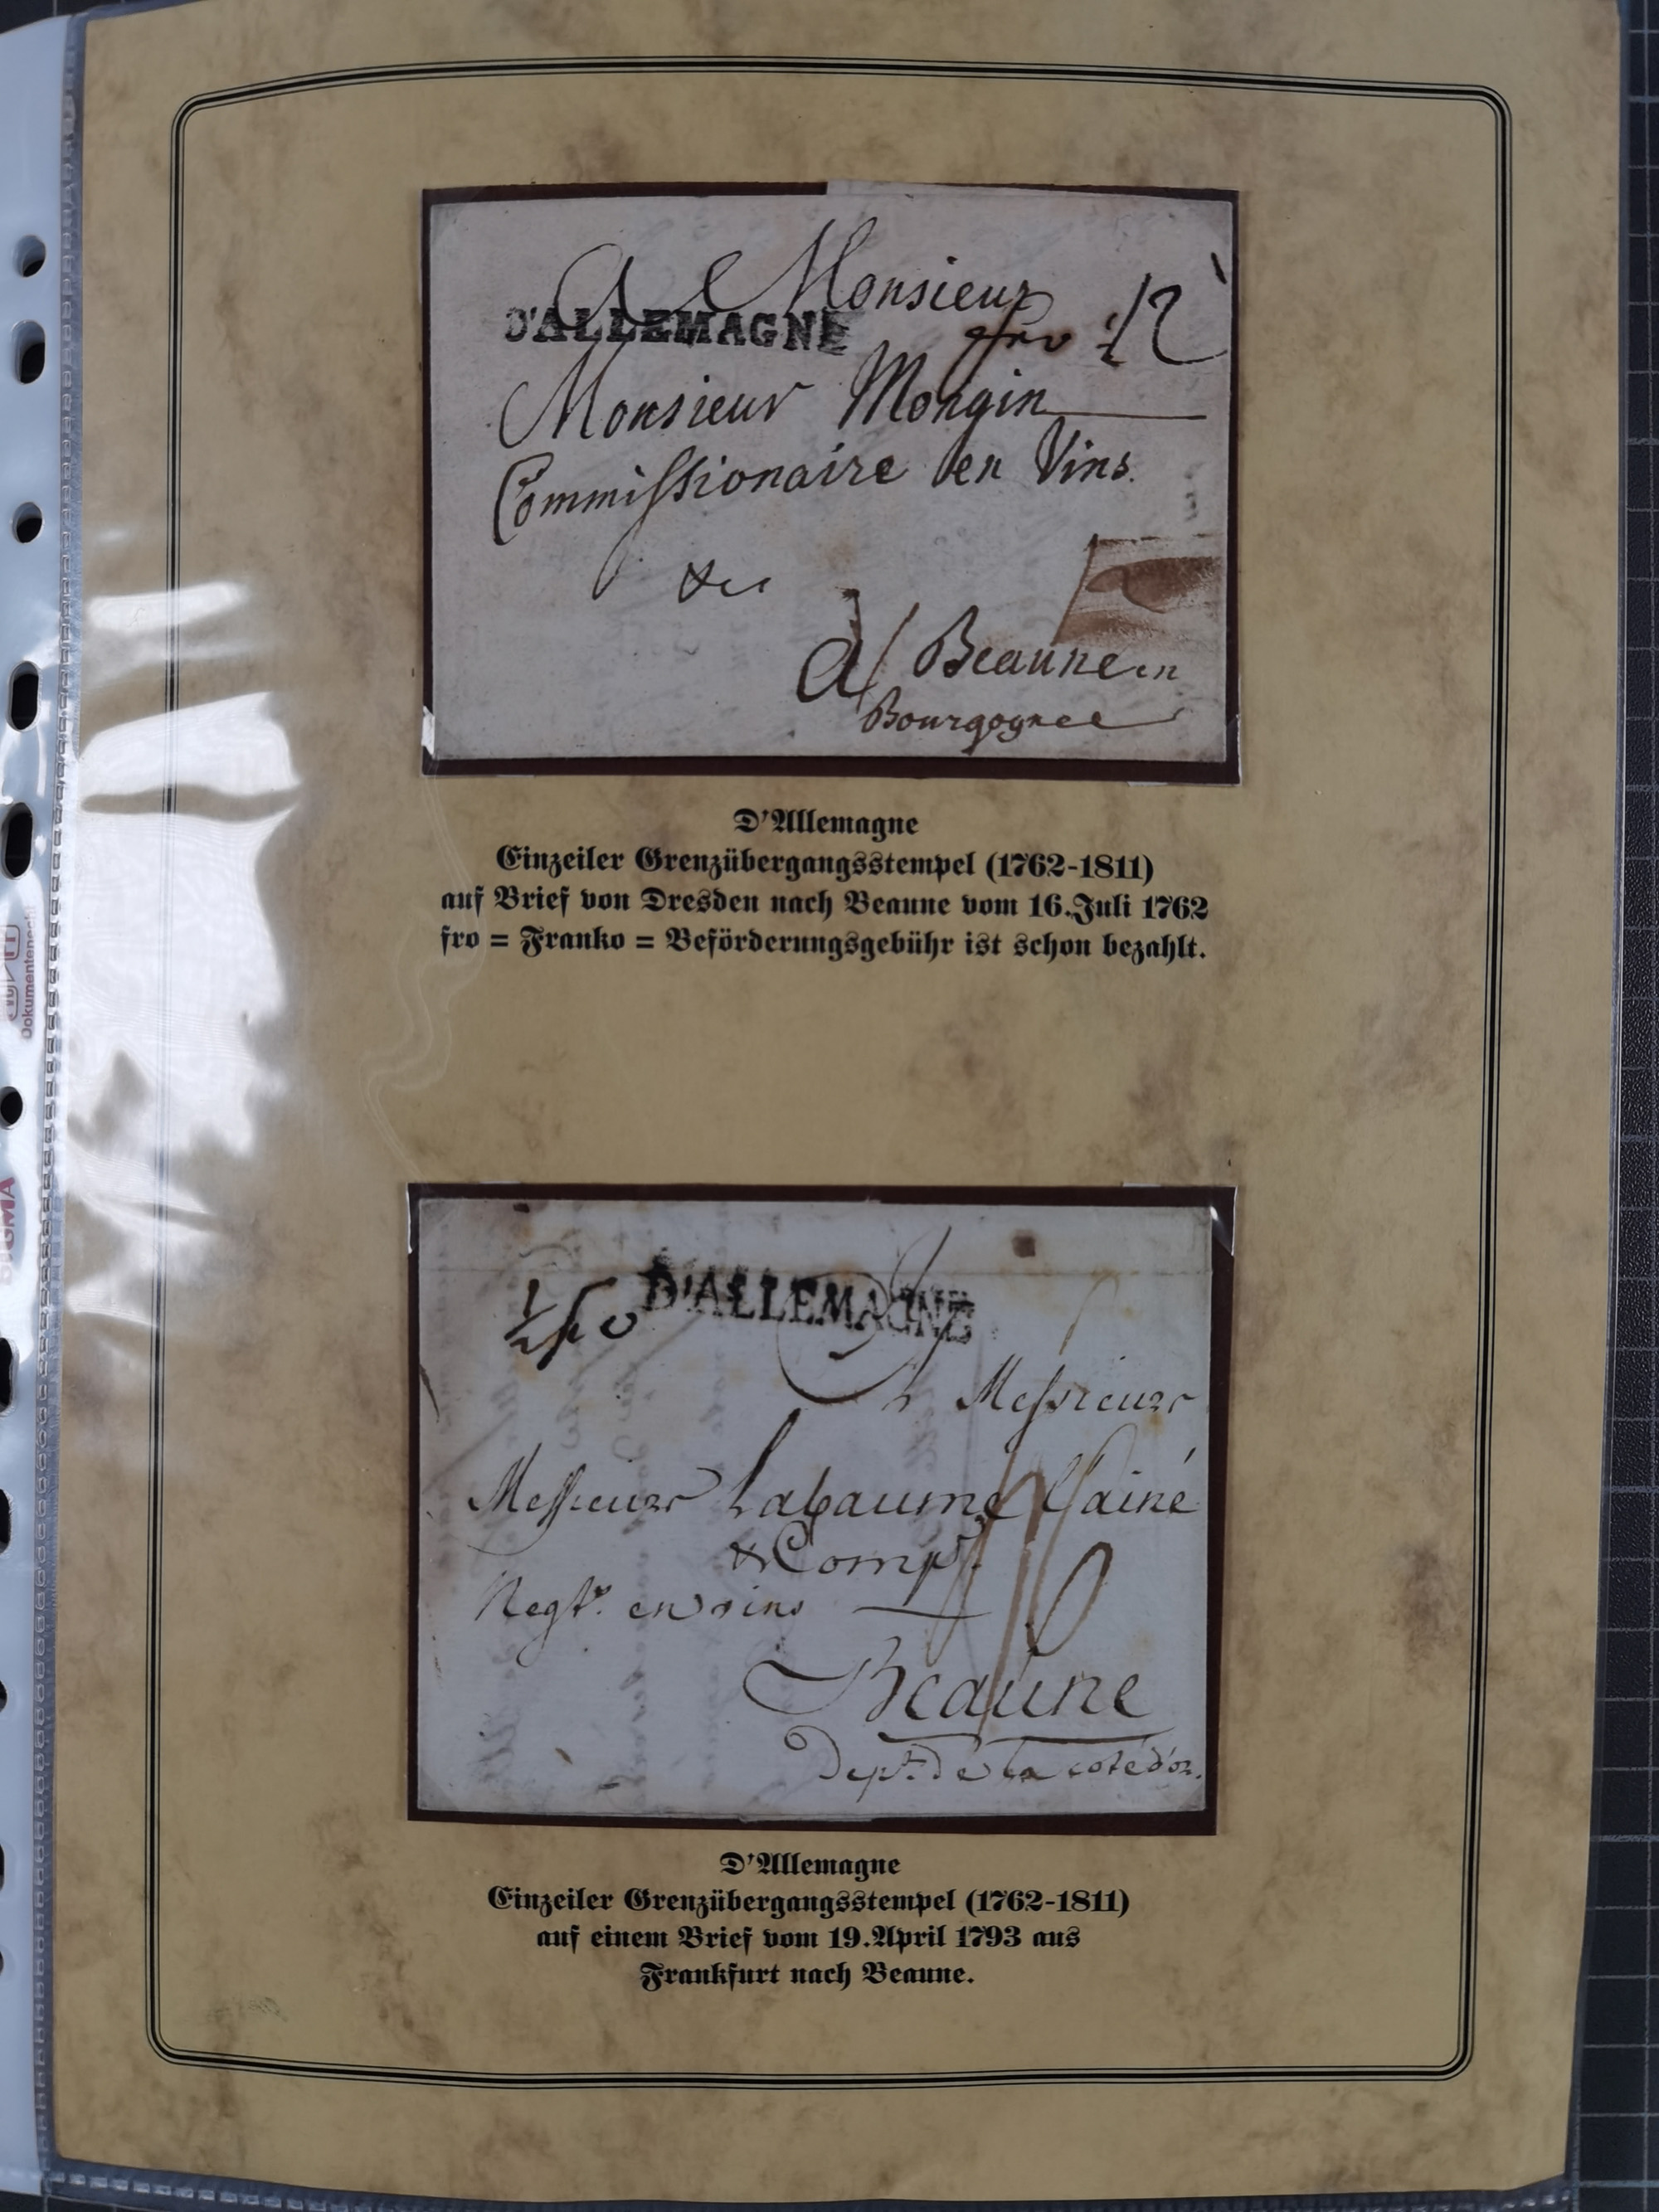 A Monsieur
D'ALLEMAGNE
fro
12
Monsieur Mongin
Commissionaire en Vins.
&c
a/ Beaune en
Bourgogne
D'Allemagne
Einzeiler Grenzübergangsstempel (1762-1811)
auf Brief von Dresden nach Beaune vom 16.Juli 1762
fro = Franko = Beförderungsgebühr ist schon bezahlt.
D'ALLEMAGNE
Messieurs
Messieurs Labaume l'ainé
& Comp.
Negt. en vins
Beaune
Dept. de la cote d'or.
D'Allemagne
Einzeiler Grenzübergangsstempel (1762-1811)
auf einem Brief vom 19.April 1793 aus
Frankfurt nach Beaune.
SIGMA